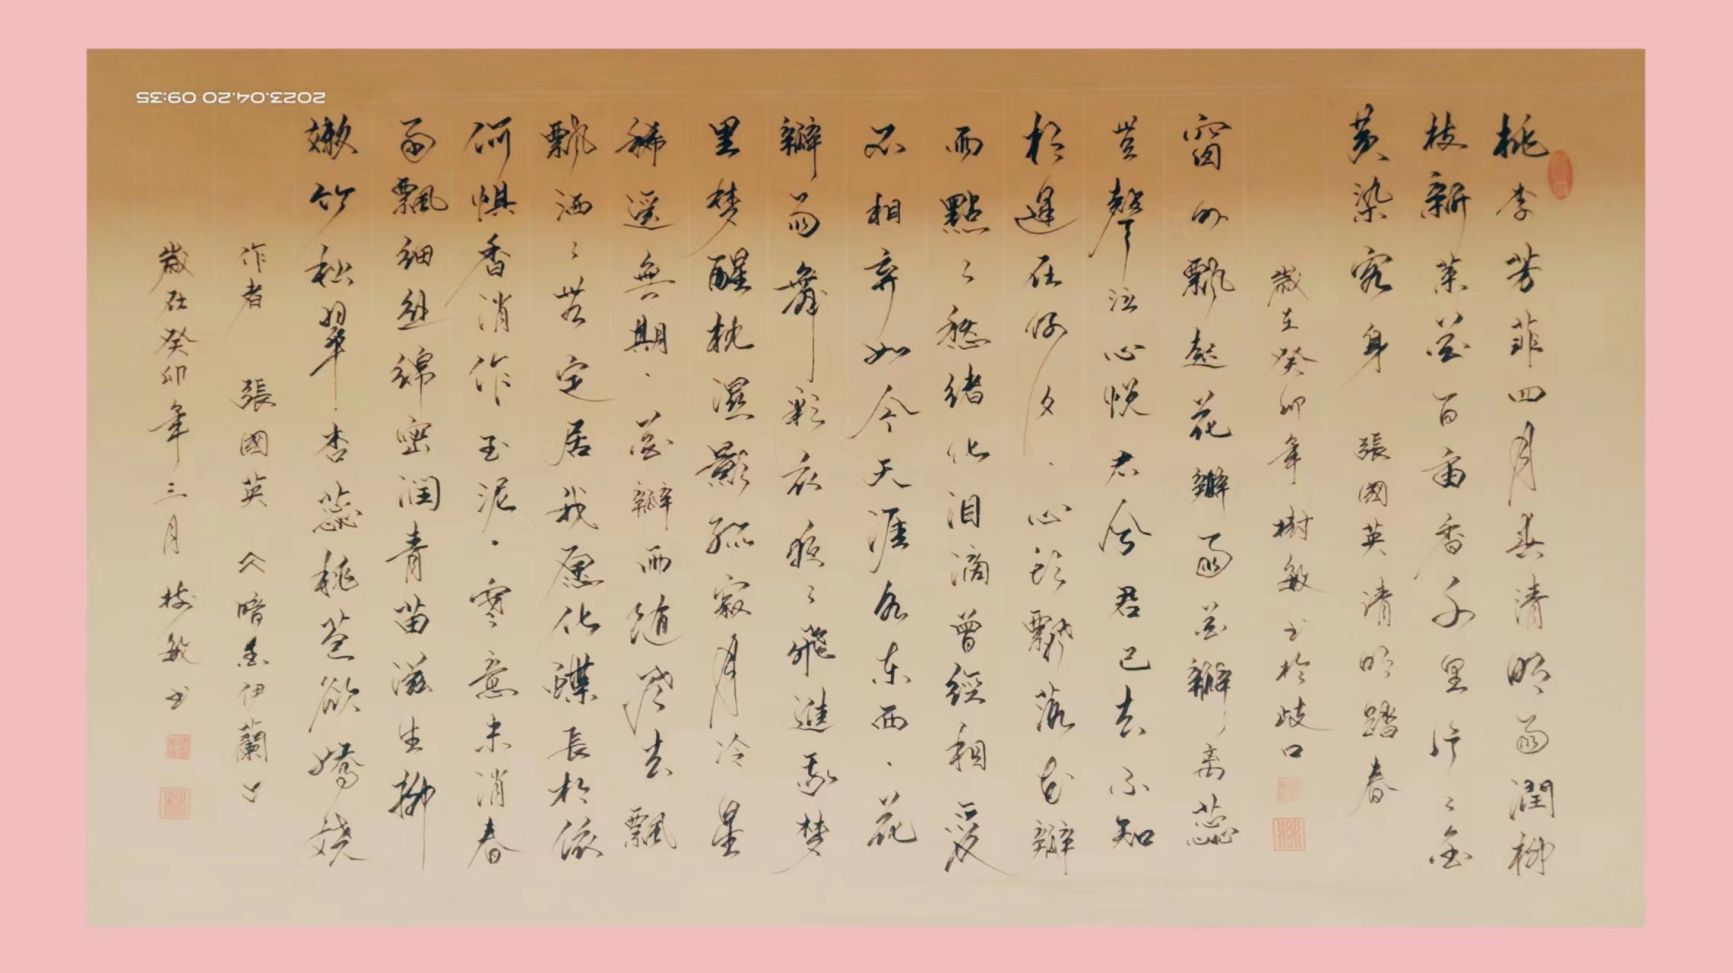 桃李芳菲四月春清明雨潤柳
枝新葉茂百亩香千里片〻金
黄染客身　張國英清明踏春
歲在癸卯年樹敏书於岐口
窗外飘起花瓣雨花瓣离蕊
豈聲泣心悦君兮君已去不知
相逢在何夕．心於飘落花瓣
雨點〻愁绪化泪滴曾經相愛
不相弃如今天涯各东西．花
瓣雨舞彩衣夜〻飛進我梦
里梦醒枕濕影孤寂月冷星
稀遥無期．花瓣雨随风去飘
飘洒〻若定居我愿化蝶長相依
何惧香消作玉泥．寒意未消春
雨飄细丝綿密润青苗滋生柳
嫩竹松翠杏蕊桃苞欲嬌嬈
作者　張國英　仌暗香伊蘭
歲在癸卯年三月樹敏书
2023.04.20 09:35